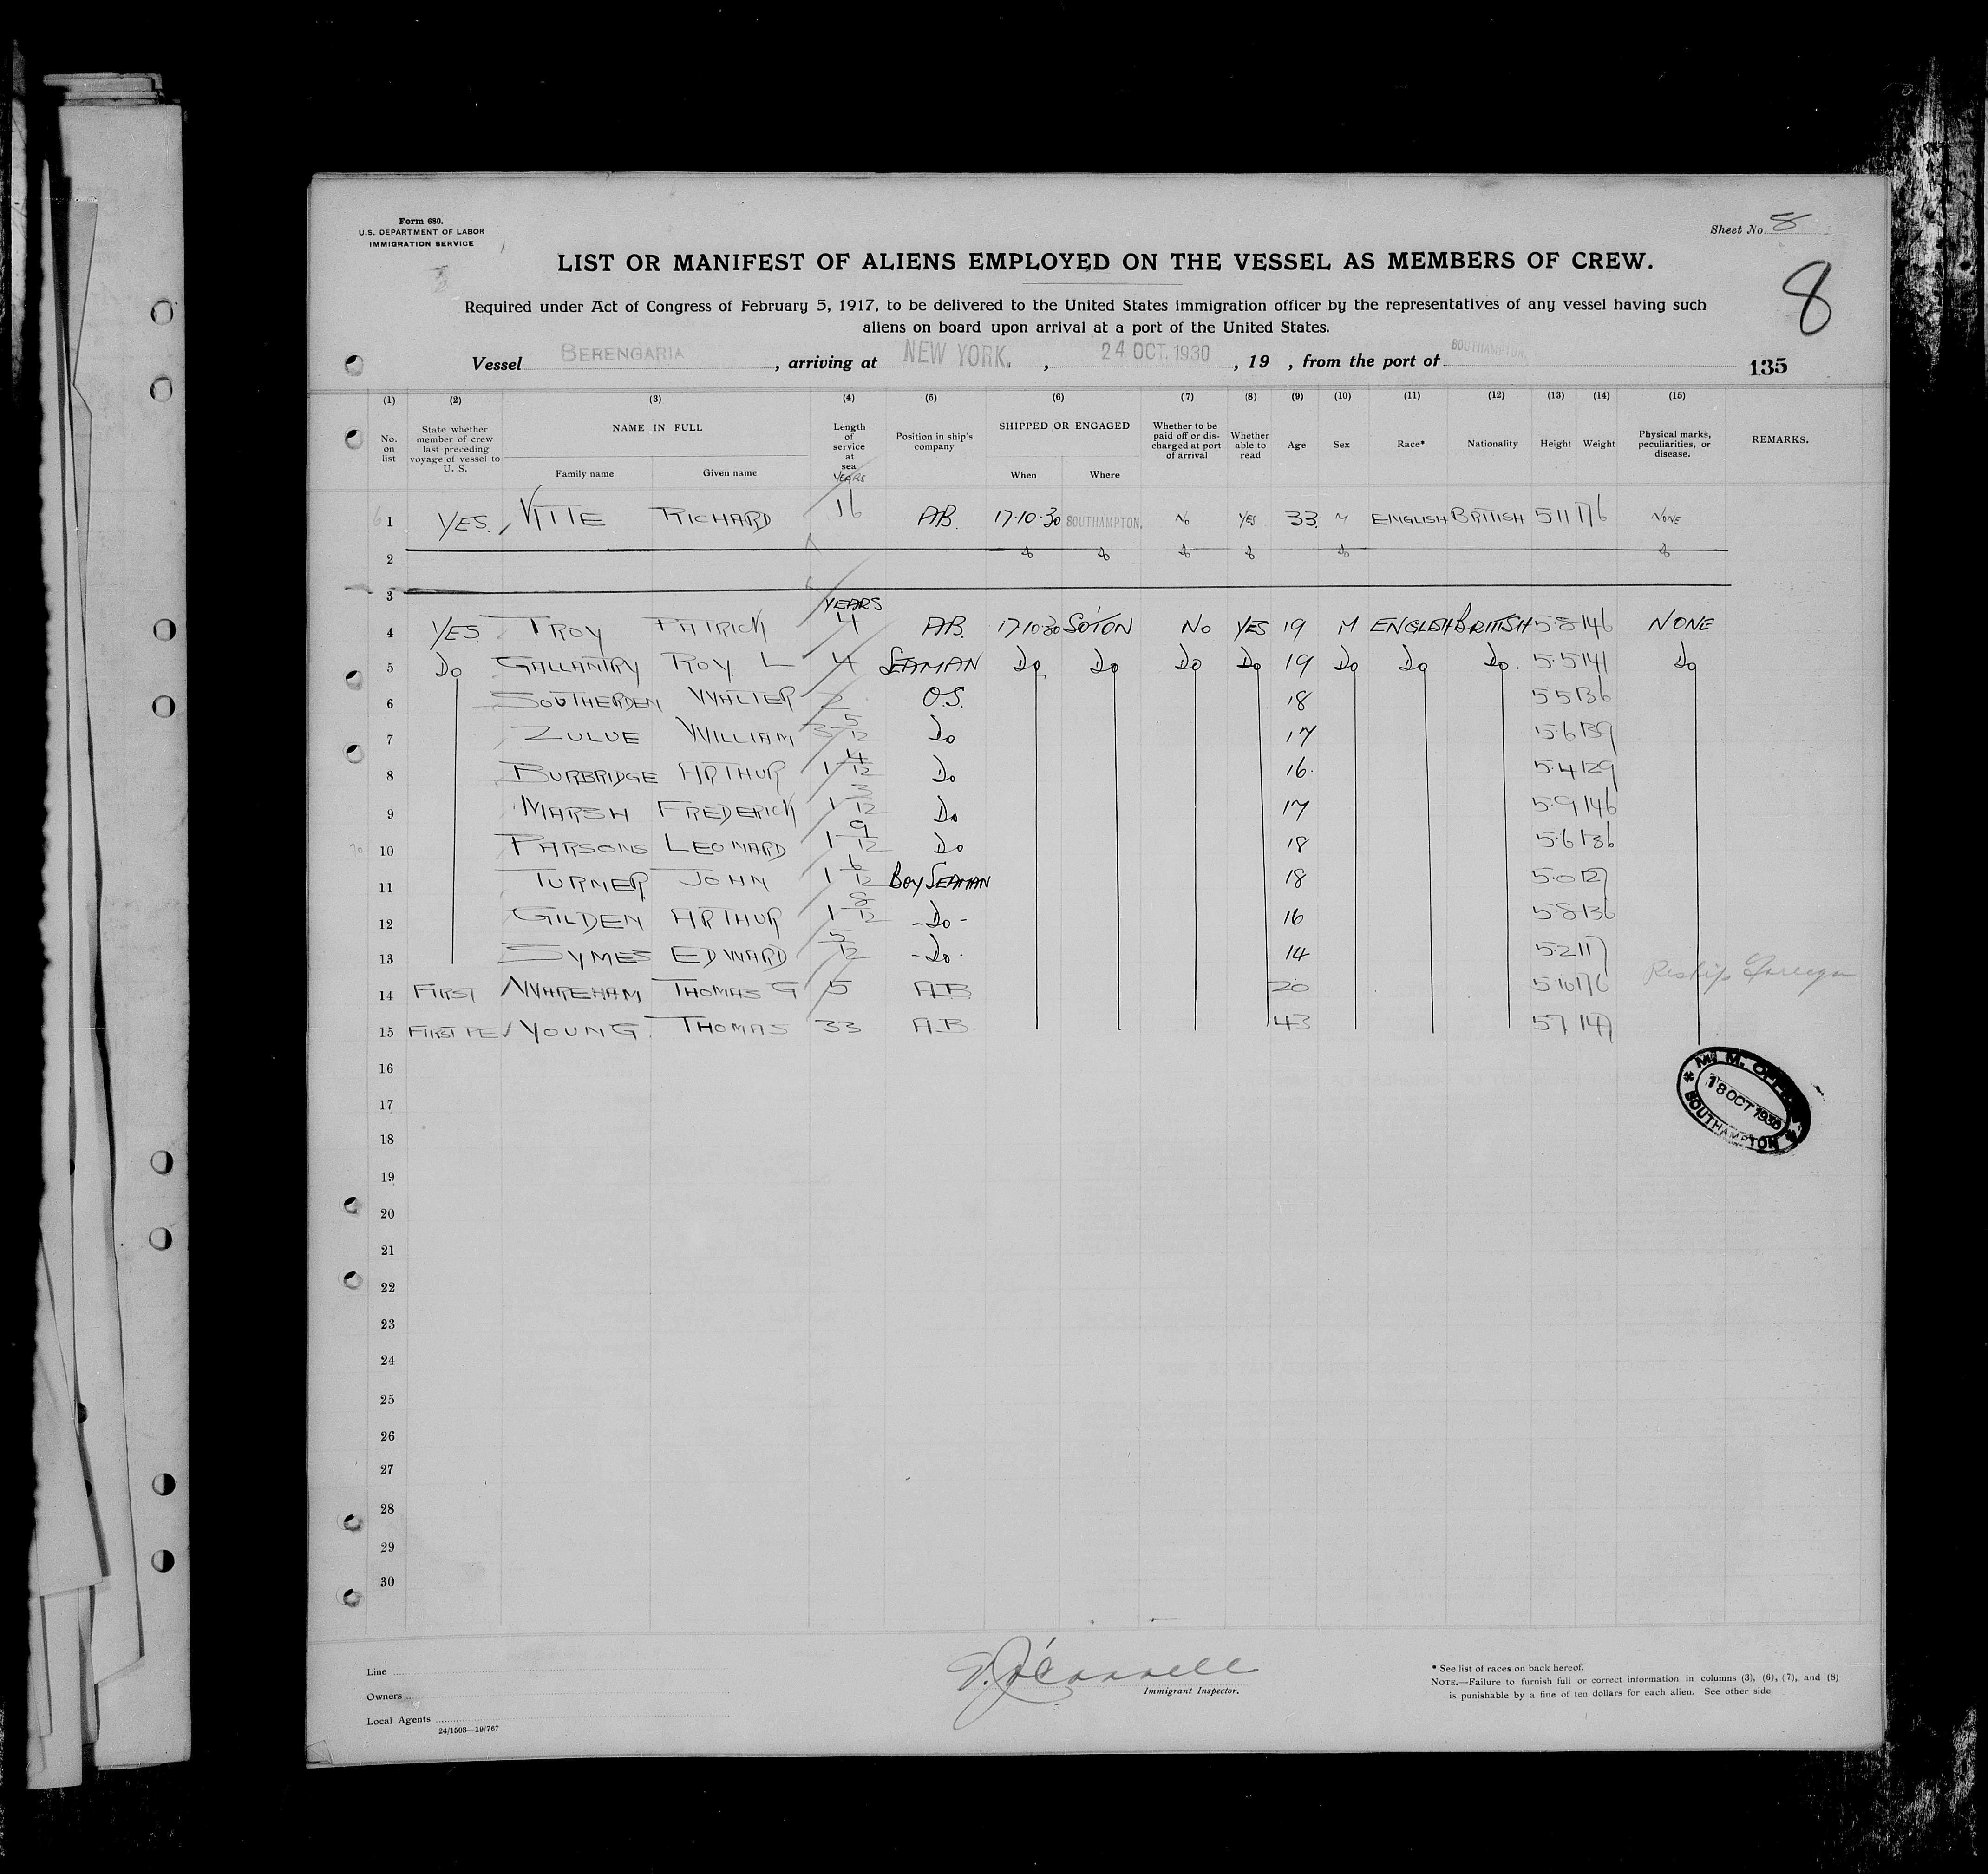 Form 680.
U.S. DEPARTMENT OF LABOR
IMMIGRATION SERVICE
Sheet No. 8
8
LIST OR MANIFEST OF ALIENS EMPLOYED ON THE VESSEL AS MEMBERS OF CREW.
Required under Act of Congress of February 5, 1917, to be delivered to the United States immigration officer by the representatives of any vessel having such
aliens on board upon arrival at a port of the United States.
Vessel BERENGARIA, arriving at NEW YORK. , 24 OCT. 1930, 19 , from the port of SOUTHAMPTON. 135
(1) (2) (3) (4) (5) (6) (7) (8) (9) (10) (11) (12) (13) (14) (15)
No. on list State whether member of crew last preceding voyage of vessel to U. S. NAME IN FULL Family name Given name Length of service at sea YEARS Position in ship's company SHIPPED OR ENGAGED When Where Whether to be paid off or discharged at port of arrival Whether able to read Age Sex Race* Nationality Height Weight Physical marks, peculiarities, or disease. REMARKS.
1 YES. RICHARD 16 AB. 17·10·30 SOUTHAMPTON. No YES 33 M ENGLISH BRITISH 511 176 NONE
2 do do do do do do
3
YEARS
4 YES. TROY PATRICK 4 AB. 17·10·30 SO'TON No YES 19 M ENGLISH BRITISH 5·8 146 NONE
5 Do GALLANTRY ROY L 4 SEAMAN Do Do Do Do 19 Do Do Do. 5·5 141 Do
6 SOUTHERDEN WALTER 2 O.S. 18 5·5 136
7 ZULUE WILLIAM 5/12 Do 17 5·6 139
8 BURBRIDGE ARTHUR 1 4/12 Do 16. 5·4 129
9 MARSH FREDERICK 1 3/12 Do 17 5·9 146
10 PARSONS LEONARD 1 9/12 Do 18 5·6 136
11 TURNER JOHN 1 6/12 BOY SEAMAN 18 5·0 127
12 GILDEN ARTHUR 1 8/12 -Do- 16 5·8 136
13 SYMES EDWARD 5/12 -Do. 14 5·2 117
14 FIRST WAREHAM THOMAS G 5 AB 20 5·10 176 Reship Foreign
15 FIRST YOUNG. THOMAS 33 A.B. 43 57 147
16
17
18
19
20
21
22
23
24
25
26
27
28
29
30
M. M. 
18 OCT 1930
SOUTHAMPTON
Line
Owners
Local Agents
24/1503—19/767
Immigrant Inspector.
* See list of races on back hereof.
NOTE.—Failure to furnish full or correct information in columns (3), (6), (7), and (8)
is punishable by a fine of ten dollars for each alien. See other side.